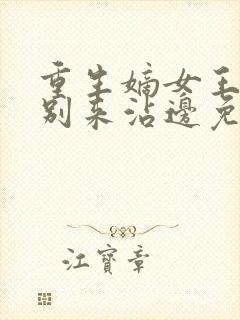 重生嫡女王
别来沾邊免
江寶章